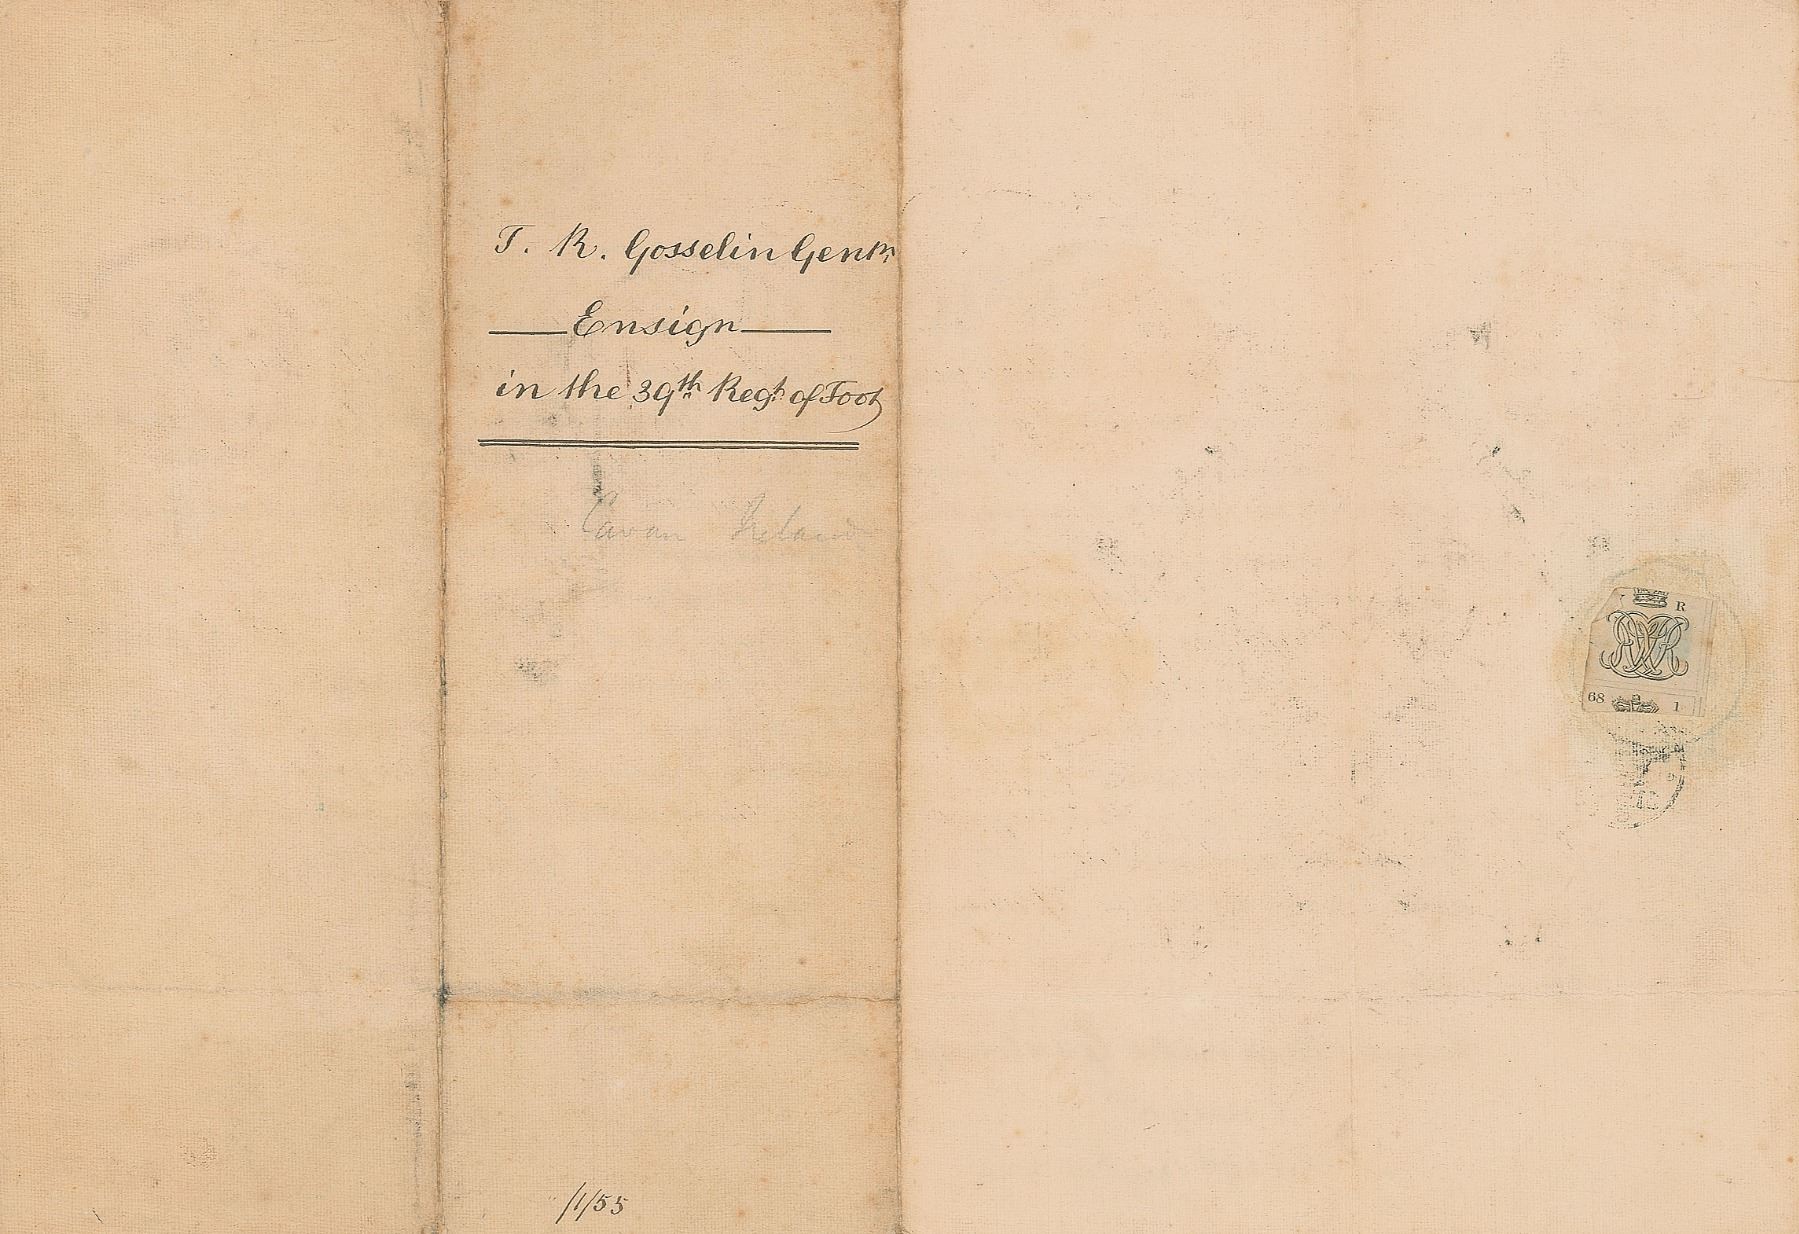 T. R. Gosselin Gentn.
Ensign
in the 39th Regt. of Foot
Cavan Ireland
/1/55
V R
68 1